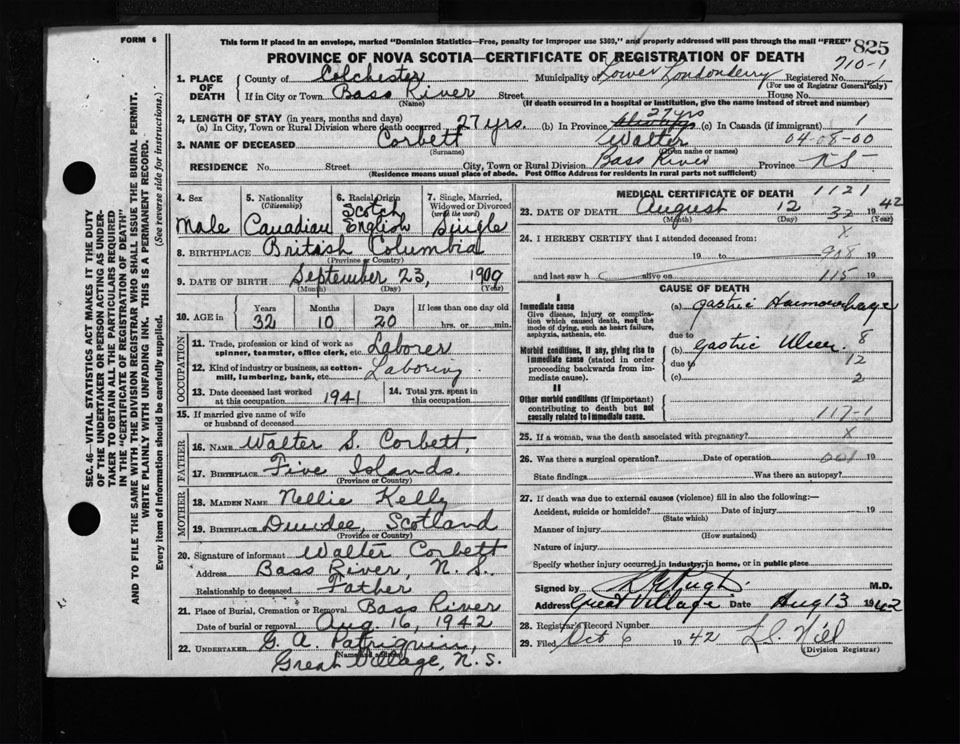 FORM 6
This form if placed in an envelope, marked "Dominion Statistics—Free, penalty for improper use $300," and properly addressed will pass through the mail "FREE"
825
PROVINCE OF NOVA SCOTIA—CERTIFICATE OF REGISTRATION OF DEATH
710-1
1. PLACE OF DEATH
County of Colchester Municipality of Lower Londonderry Registered No.
(For use of Registrar General only)
If in City or Town Bass River Street House No.
(Name) (If death occurred in a hospital or institution, give the name instead of street and number)
2. LENGTH OF STAY (in years, months and days)
27 yrs
(a) In City, Town or Rural Division where death occurred 27 yrs. (b) In Province (c) In Canada (if immigrant) 1
3. NAME OF DECEASED Corbett Walter 04-08-00
(Surname) (Given name or names)
RESIDENCE No. Street City, Town or Rural Division Bass River Province N.S.
(Residence means usual place of abode. Post Office Address for residents in rural parts not sufficient)
4. Sex
Male
5. Nationality
(Citizenship)
Canadian
6. Racial Origin
Scotch
English
7. Single, Married, Widowed or Divorced
(write the word)
Single
8. BIRTHPLACE British Columbia
(Province or Country)
9. DATE OF BIRTH September 23, 1909
(Month) (Day) (Year)
10. AGE in
Years Months Days If less than one day old
32 10 20 hrs. or min.
OCCUPATION
11. Trade, profession or kind of work as spinner, teamster, office clerk, etc. Laborer
12. Kind of industry or business, as cotton-mill, lumbering, bank, etc. Laboring
13. Date deceased last worked at this occupation 1941
14. Total yrs. spent in this occupation
15. If married give name of wife or husband of deceased
FATHER
16. NAME Walter S. Corbett,
17. BIRTHPLACE Five Islands.
(Province or Country)
MOTHER
18. MAIDEN NAME Nellie Kelly
19. BIRTHPLACE Dundee, Scotland
(Province or Country)
20. Signature of informant Walter Corbett
Address Bass River, N.S.
Relationship to deceased Father
21. Place of Burial, Cremation or Removal Bass River
Date of burial or removal Aug. 16, 1942
22. UNDERTAKER G. A. Patriquin,
(Name and address)
Great Village, N.S.
MEDICAL CERTIFICATE OF DEATH 1121
23. DATE OF DEATH August 12 32 1942
(Month) (Day) (Year)
24. I HEREBY CERTIFY that I attended deceased from: X
19 to 918 19
and last saw h alive on 115 19
CAUSE OF DEATH
I
Immediate cause
Give disease, injury or complication which caused death, not the mode of dying, such as heart failure, asphyxia, asthenia, etc.
(a) Gastric Haemorrhage
due to
Morbid conditions, if any, giving rise to immediate cause (stated in order proceeding backwards from immediate cause).
(b) Gastric Ulcer 8
due to 12
(c) 2
II
Other morbid conditions (if important) contributing to death but not causally related to immediate cause.
117-1
25. If a woman, was the death associated with pregnancy? X
26. Was there a surgical operation? Date of operation 001 19
State findings Was there an autopsy?
27. If death was due to external causes (violence) fill in also the following:—
Accident, suicide or homicide? Date of injury 19
(State which)
Manner of injury
(How sustained)
Nature of injury
Specify whether injury occurred in industry, in home, or in public place
Signed by M.D.
Address Great Village Date Aug 13 1942
28. Registrar's Record Number
29. Filed Oct 6 1942
(Division Registrar)
SEC. 46—VITAL STATISTICS ACT MAKES IT THE DUTY
OF THE UNDERTAKER OR PERSON ACTING AS UNDER-
TAKER TO OBTAIN ALL THE PARTICULARS REQUIRED
IN THE "CERTIFICATE OF REGISTRATION OF DEATH"
AND TO FILE THE SAME WITH THE DIVISION REGISTRAR WHO SHALL ISSUE THE BURIAL PERMIT.
WRITE PLAINLY WITH UNFADING INK. THIS IS A PERMANENT RECORD.
Every item of information should be carefully supplied. (See reverse side for instructions.)